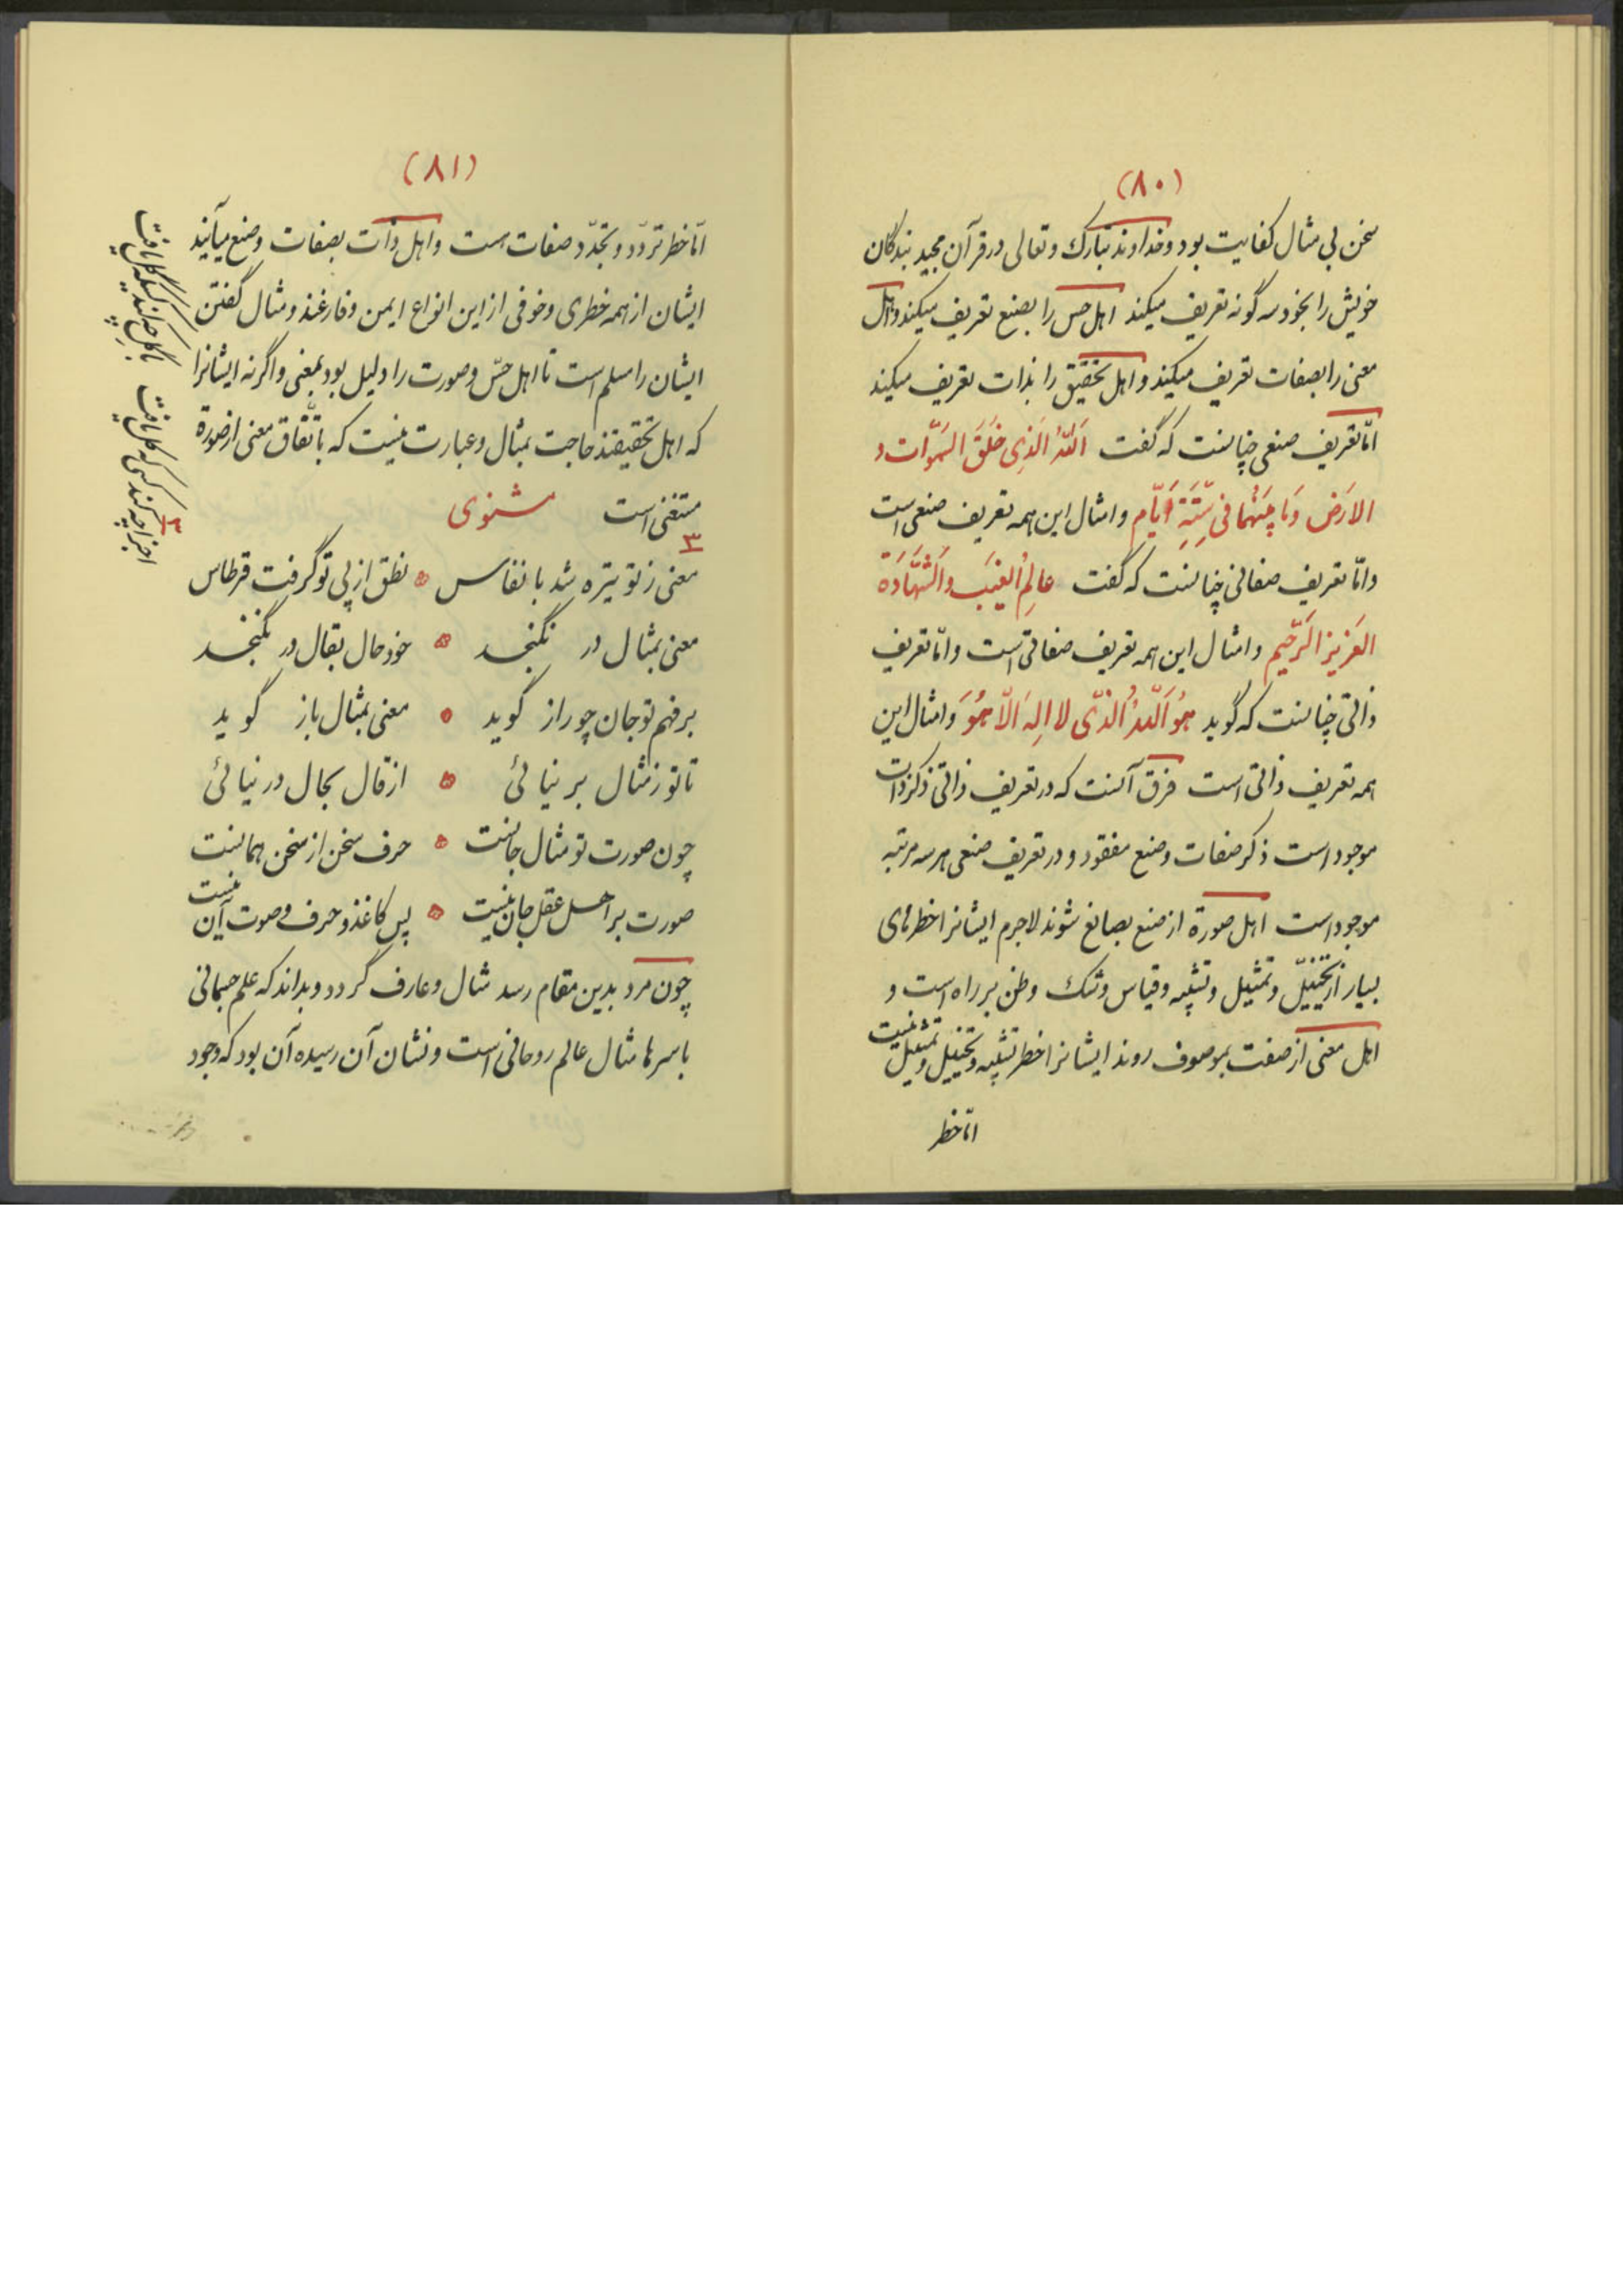 (۸۰)
سخن بی مثال کفایت بود و خداوند تبارک و تعالی در قرآن مجید بندگان
خویش را بخود سه گونه تعریف میکند اهل حس را بصنع تعریف میکند و اهل
معنی را بصفات تعریف میکند و اهل تحقیق را بذات تعریف میکند
امّا تعریف صنعی چنانست که گفت اَللّهُ الَّذِی خَلَقَ السَّموَاتِ و
الاَرَضَ وَمَا بَینَهُما فی سِتَّةِ اَیّامٍ و امثال این همه تعریف صنعی است
و امّا تعریف صفاتی چنانست که گفت عالِمُ الغَیبِ وَالشَّهَادَة
العَزیز الرَّحیم و امثال این همه تعریف صفاتی است و امّا تعریف
ذاتی چنانست که گوید هُوَ اَللّهُ الَّذی لا اِلهَ اِلّا هُوَ و امثال این
همه تعریف ذاتی است فرق آنست که در تعریف ذاتی ذکر ذات
موجود است ذکر صفات و صنع مفقود و در تعریف صنعی هر سه مرتبه
موجود است اهل صورة از صنع بصانع شوند لاجرم ایشانرا خطرهای
بسیار از تخییل و تمثیل و تشبیه و قیاس و شک وظن بر راه است و
اهل معنی از صفت بموصوف روند ایشانرا خطر تشبیه و تخییل و تمثیل نیست
امّا خطر
(۸۱)
امّا خطر تردّد و تجدّد صفات است و اهل ذات بصفات و صنع میآیند
ایشان از همه خطری و خوفی از این انواع ایمن و فارغند و مثال گفتن
ایشان را مسلم است تا اهل حسّ و صورت را دلیل بود بمعنی و اگر نه ایشانرا
که اهل تحقیقند حاجت بمثال و عبارت نیست که باتّفاق معنی از صورة
مستغنی است مثنوی
۳
معنی ز تو تیره شد بانفاس نطق از پی تو گرفت قرطاس
معنی بمثال در نگنجد خود حال بقال در نگنجد
بر فهم تو جان چو راز گوید معنی بمثال باز گوید
تا تو ز مثال بر نیائی از قال بحال در نیائی
چون صورت تو مثال جانست حرف سخن از سخن همانست
صورت بر اهل عقل جان نیست پس کاغذ و حرف و صوت آن نیست
چون مرد بدین مقام رسد مثال و عارف گردد و بداند که علم جسمانی
باسرها مثال عالم روحانی است و نشان آن رسیده آن بود که وجود
۳
اجزا چه کند کسی که کل یافت